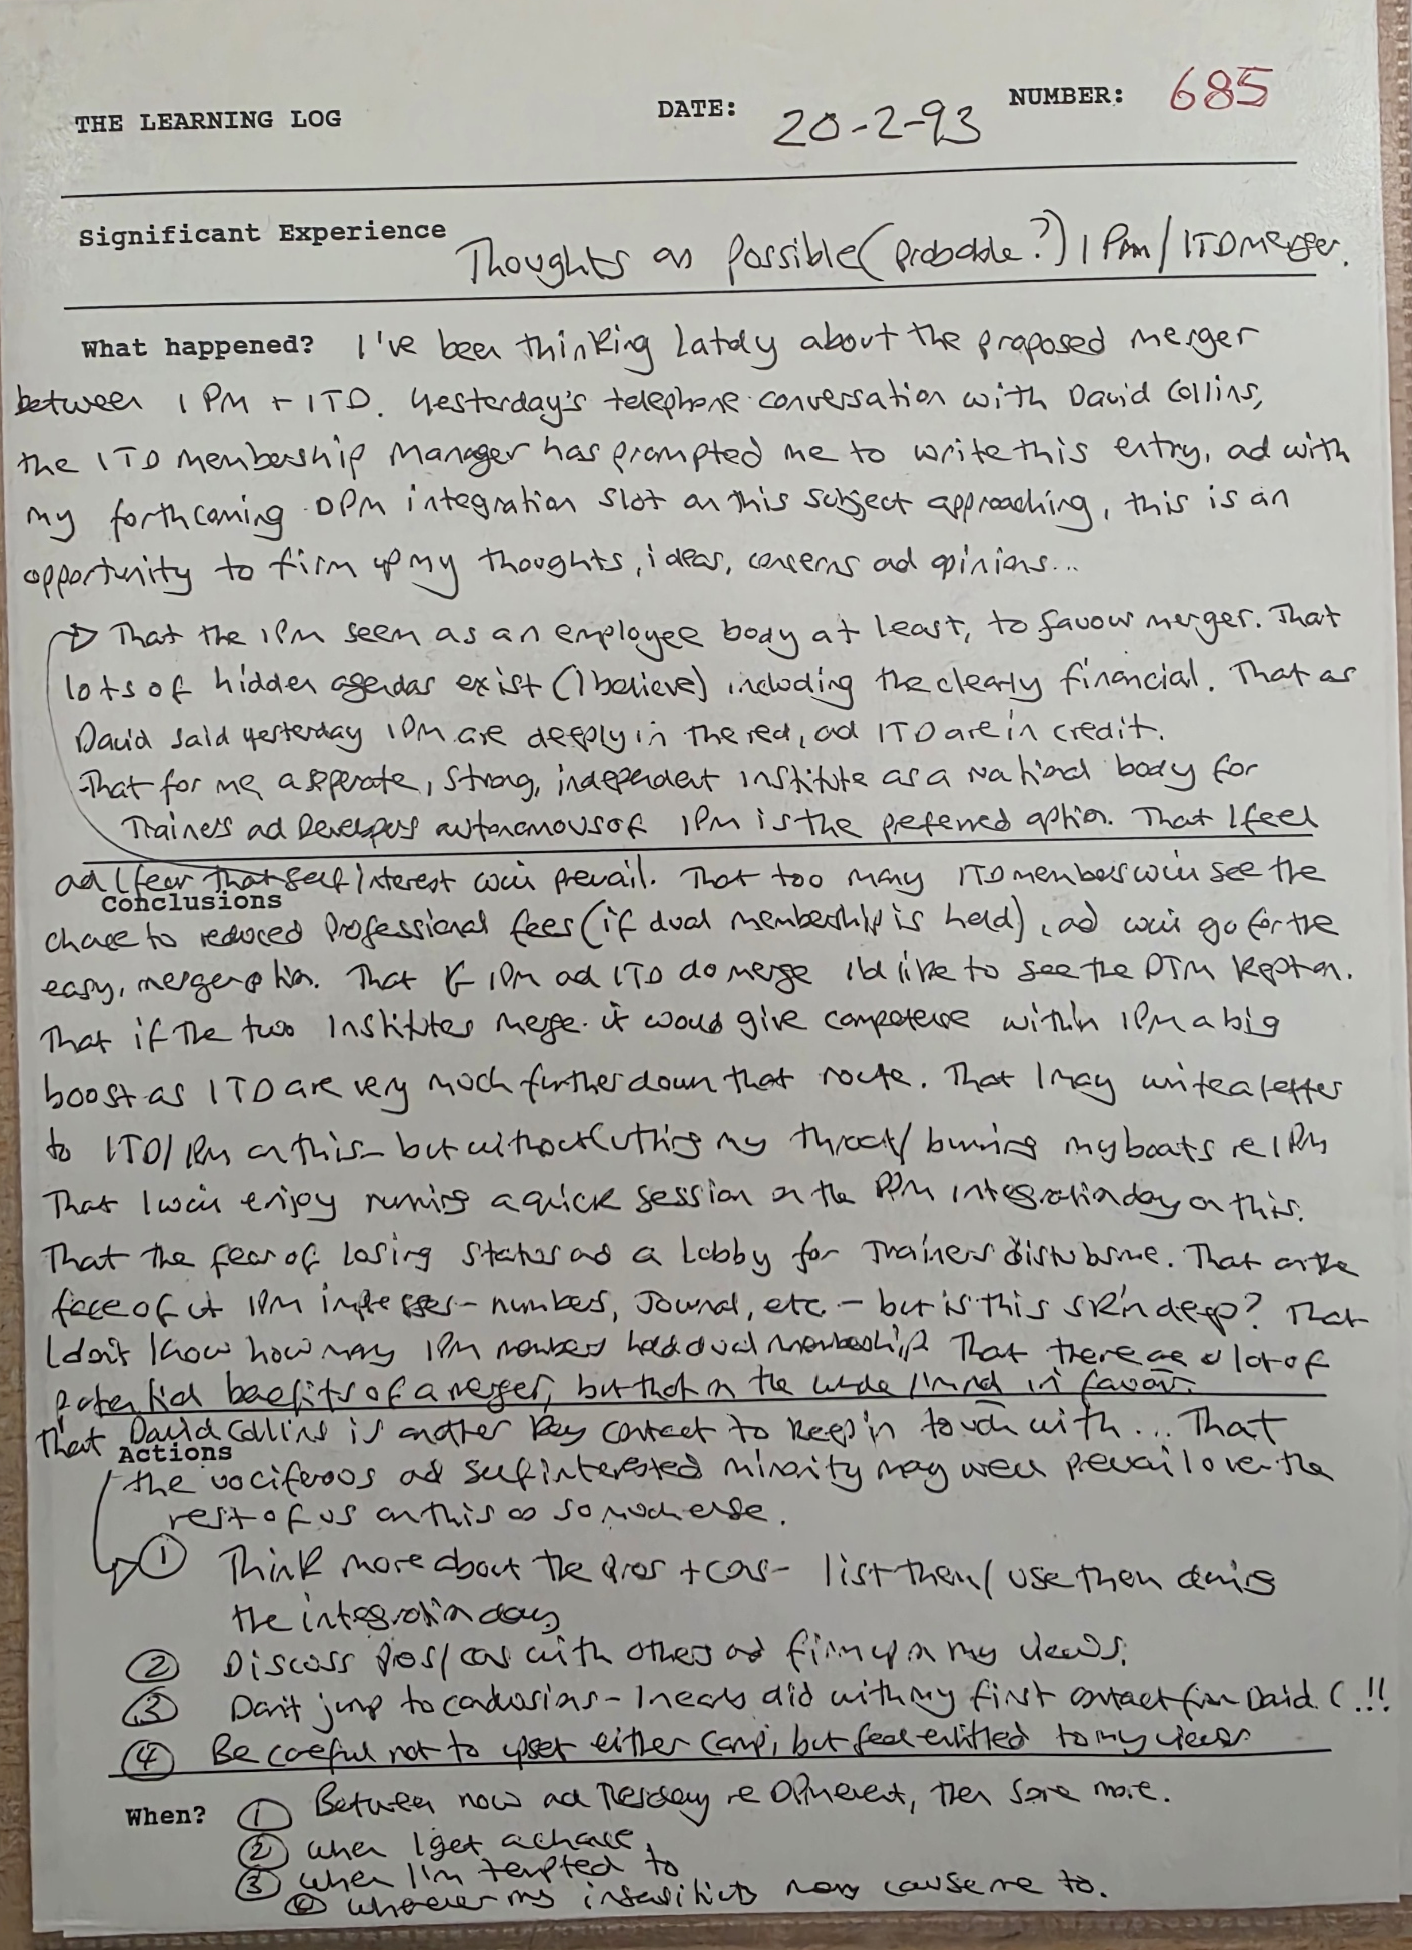 THE LEARNING LOG DATE: 20-2-93 NUMBER: 685
Significant Experience Thoughts on possible (probable?) IPM/ITD merger.
What happened? I've been thinking lately about the proposed merger
between IPM + ITD. Yesterday's telephone conversation with David Collins,
the ITD membership manager has prompted me to write this entry, ad with
my forthcoming DPM integration slot on this subject approaching, this is an
opportunity to firm up my thoughts, ideas, concerns ad opinions...
That the IPM seem as an employee body at least, to favour merger. That
lots of hidden agendas exist (I believe) including the clearly financial. That as
David said yesterday IPM are deeply in the red, ad ITD are in credit.
That for me, a seperate, strong, independent institute as a national body for
Trainers ad Developers autonomous of IPM is the preferred option. That I feel
ad I fear that self interest will prevail. That too many ITD members will see the
Conclusions
chance to reduced Professional fees (if dual membership is held), ad will go for the
easy, merger option. That if IPM ad ITD do merge I'd like to see the DTM kept on.
That if the two Institutes merge it would give competence within IPM a big
boost as ITD are very much further down that route. That I may write a letter
to ITD/IPM on this - but without cutting my throat/burning my boats re IPM
That I will enjoy running a quick session on the DPM integration day on this.
That the fear of losing status as a lobby for Trainers disturbs me. That on the
face of it IPM impresses - numbers, Journal, etc - but is this skin deep? That
I don't know how many IPM members hold dual membership. That there are a lot of
potential benefits of a merger, but that on the whole I'm not in favour.
That David Collins is another key contact to keep in touch with... That
Actions
the vociferous ad self interested minority may well prevail over the
rest of us on this as so much else.
① Think more about the pros + cons - list them/use them during
the integration day
② Discuss pros/cons with others ad firm up on my views.
③ Don't jump to conclusions - I nearly did with my first contact from David C.!!
④ Be careful not to upset either camp, but feel entitled to my views
When? ① Between now ad Tuesday re DPM event, then some more.
② when I get a chance.
③ when I'm tempted to
④ whenever my insensitivity may cause me to.